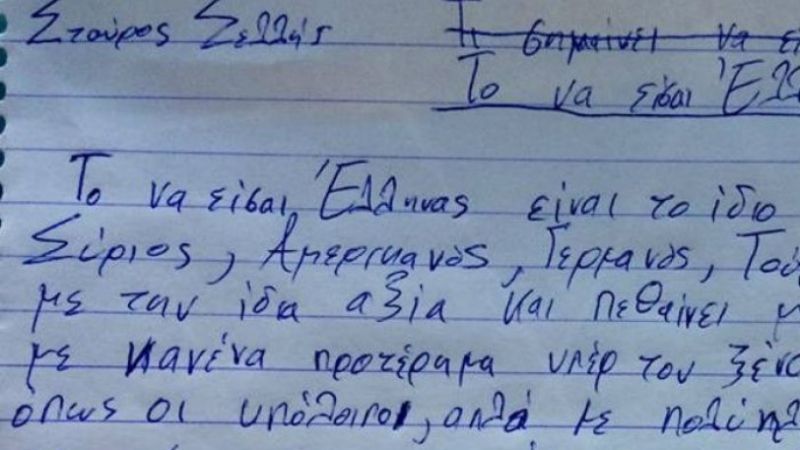 Σταύρος Σελλής
Τι σημαίνει να εί
Το να είσαι Έλλ
Το να είσαι Έλληνας είναι το ίδιο
Σύριος, Αμερικανός, Γερμανός, Τού
με την ίδια αξία και πεθαίνει μ
με κανένα προτέρημα υπέρ του ξένο
όπως οι υπόλοιποι, απλά με πολύπλ